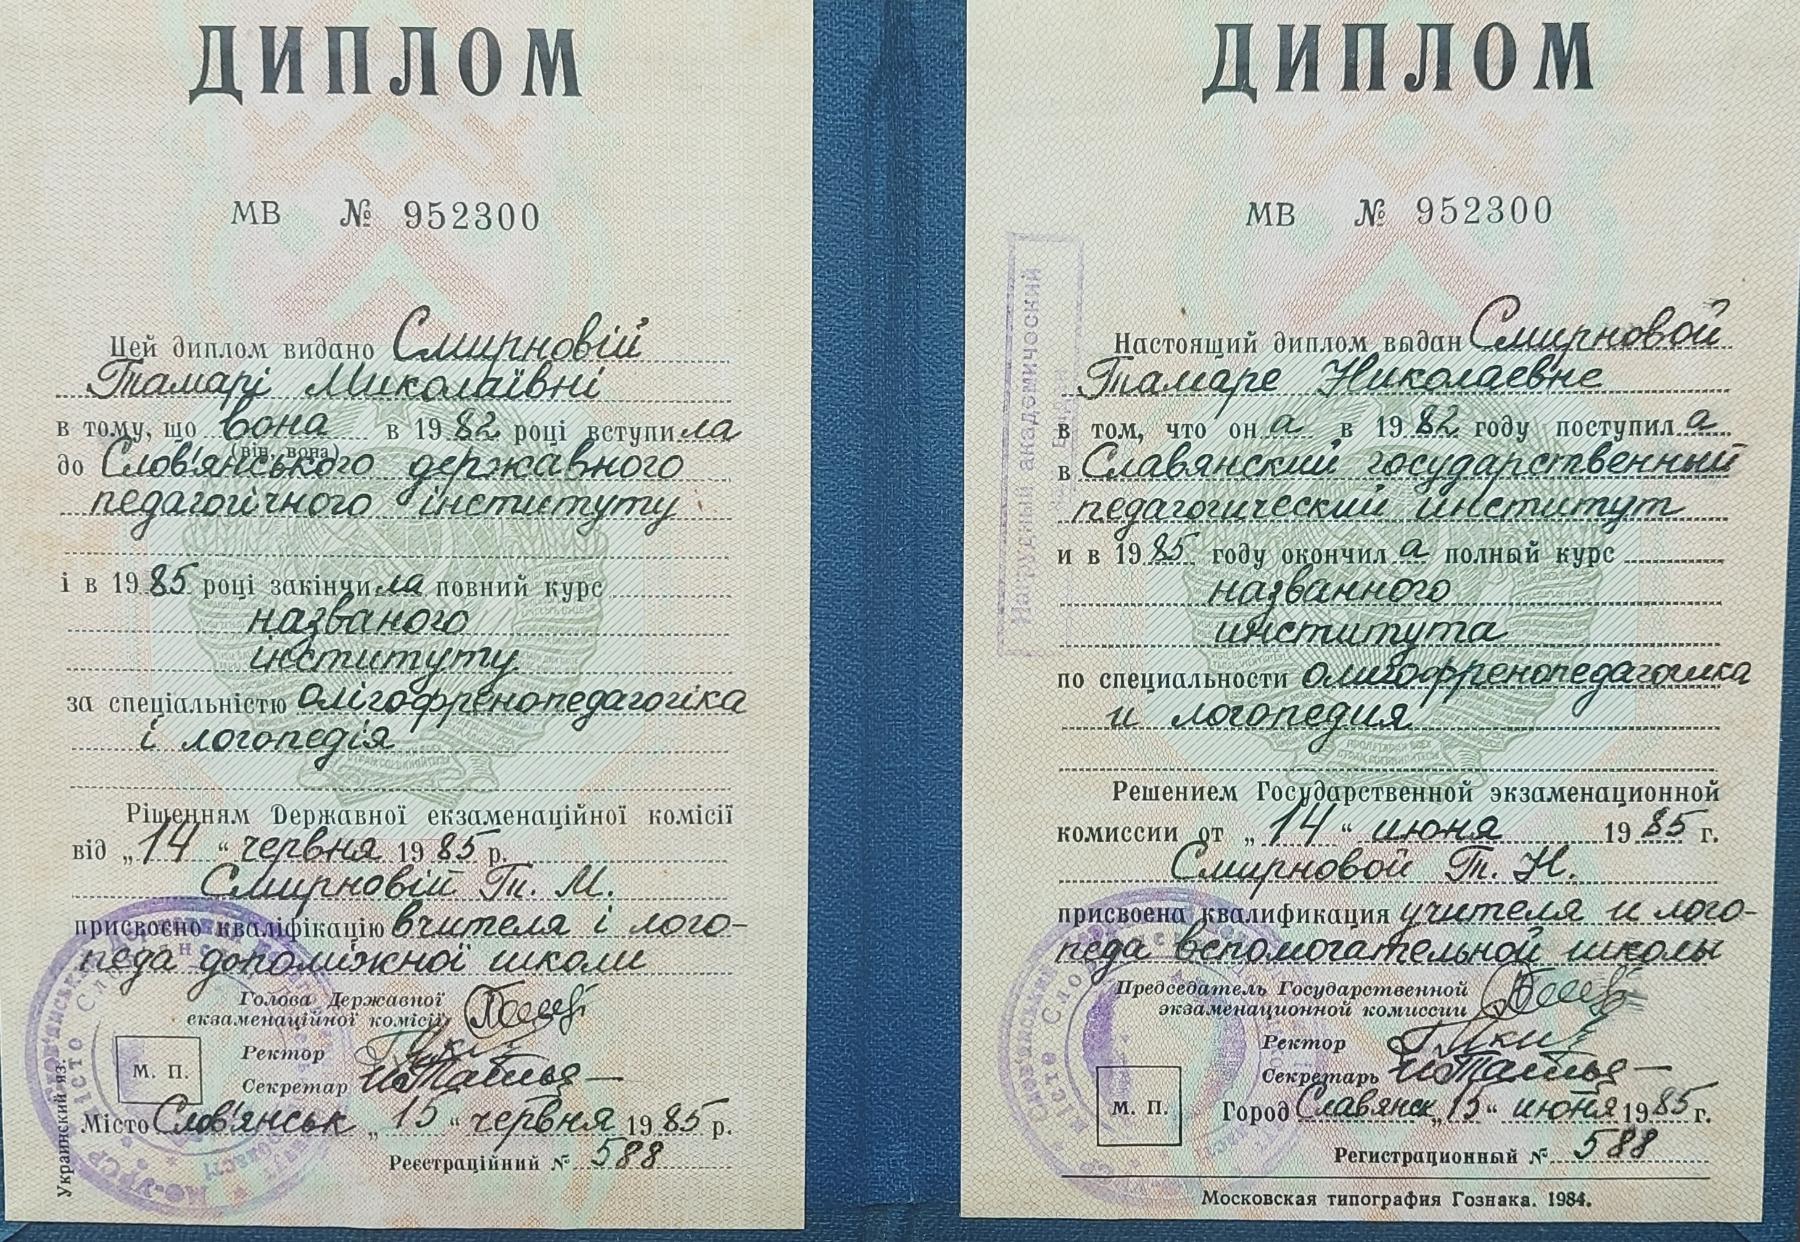 ДИПЛОМ
МВ № 952300
Цей диплом видано Смирновій
Тамарі Миколаївні
в тому, що вона в 1982 році вступила
(він, вона)
до Слов'янського державного
педагогічного інституту
і в 1985 році закінчила повний курс
названого
інституту
за спеціальністю олігофренопедагогіка
і логопедія
Рішенням Державної екзаменаційної комісії
від „14“ червня 1985 р.
Смирновій Т. М.
присвоєно кваліфікацію вчителя і лого-
педа допоміжної школи
Голова Державної
екзаменаційної комісії
Ректор
М. П.
Секретар
Місто Слов'янськ „15“ червня 1985 р.
Реєстраційний № 588
Украинский яз.
ДИПЛОМ
МВ № 952300
академический
Настоящий диплом выдан Смирновой
Тамаре Николаевне
в том, что она в 1982 году поступила
в Славянский государственный
педагогический институт
и в 1985 году окончила полный курс
названного
института
по специальности олигофренопедагогика
и логопедия
ПРОЛЕТАРИИ ВСЕХ
СТРАН, СОЕДИНЯЙТЕСЬ
Решением Государственной экзаменационной
комиссии от „14“ июня 1985 г.
Смирновой Т. Н.
присвоена квалификация учителя и лого-
педа вспомогательной школы
Председатель Государственной
экзаменационной комиссии
Ректор
Секретарь
М. П.
Город Славянск „15“ июня 1985 г.
Регистрационный № 588
Московская типография Гознака. 1984.